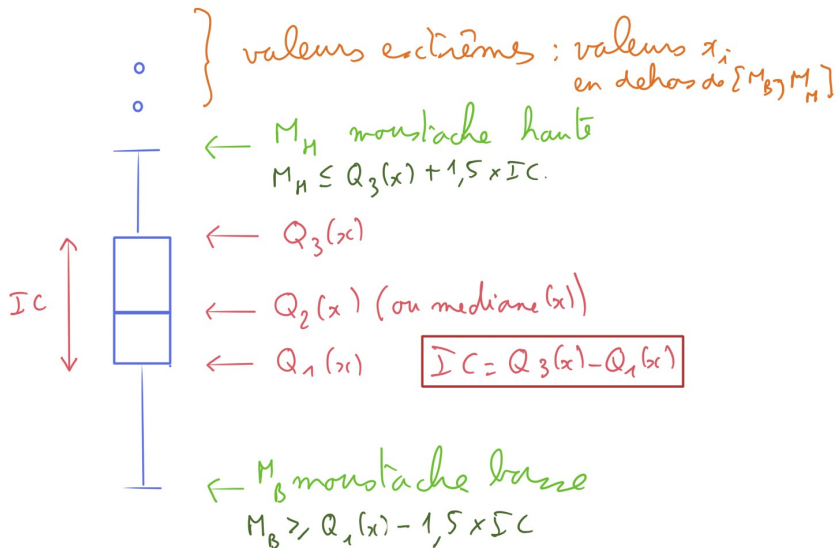 valeurs extrêmes : valeurs xi
en dehors de [M_B, M_H]
← M_H moustache haute
M_H ≤ Q₃(x) + 1,5 × IC.
← Q₃(x)
IC
← Q₂(x) (ou mediane(x))
← Q₁(x) IC = Q₃(x) – Q₁(x)
← M_B moustache basse
M_B ≥ Q₁(x) – 1,5 × IC